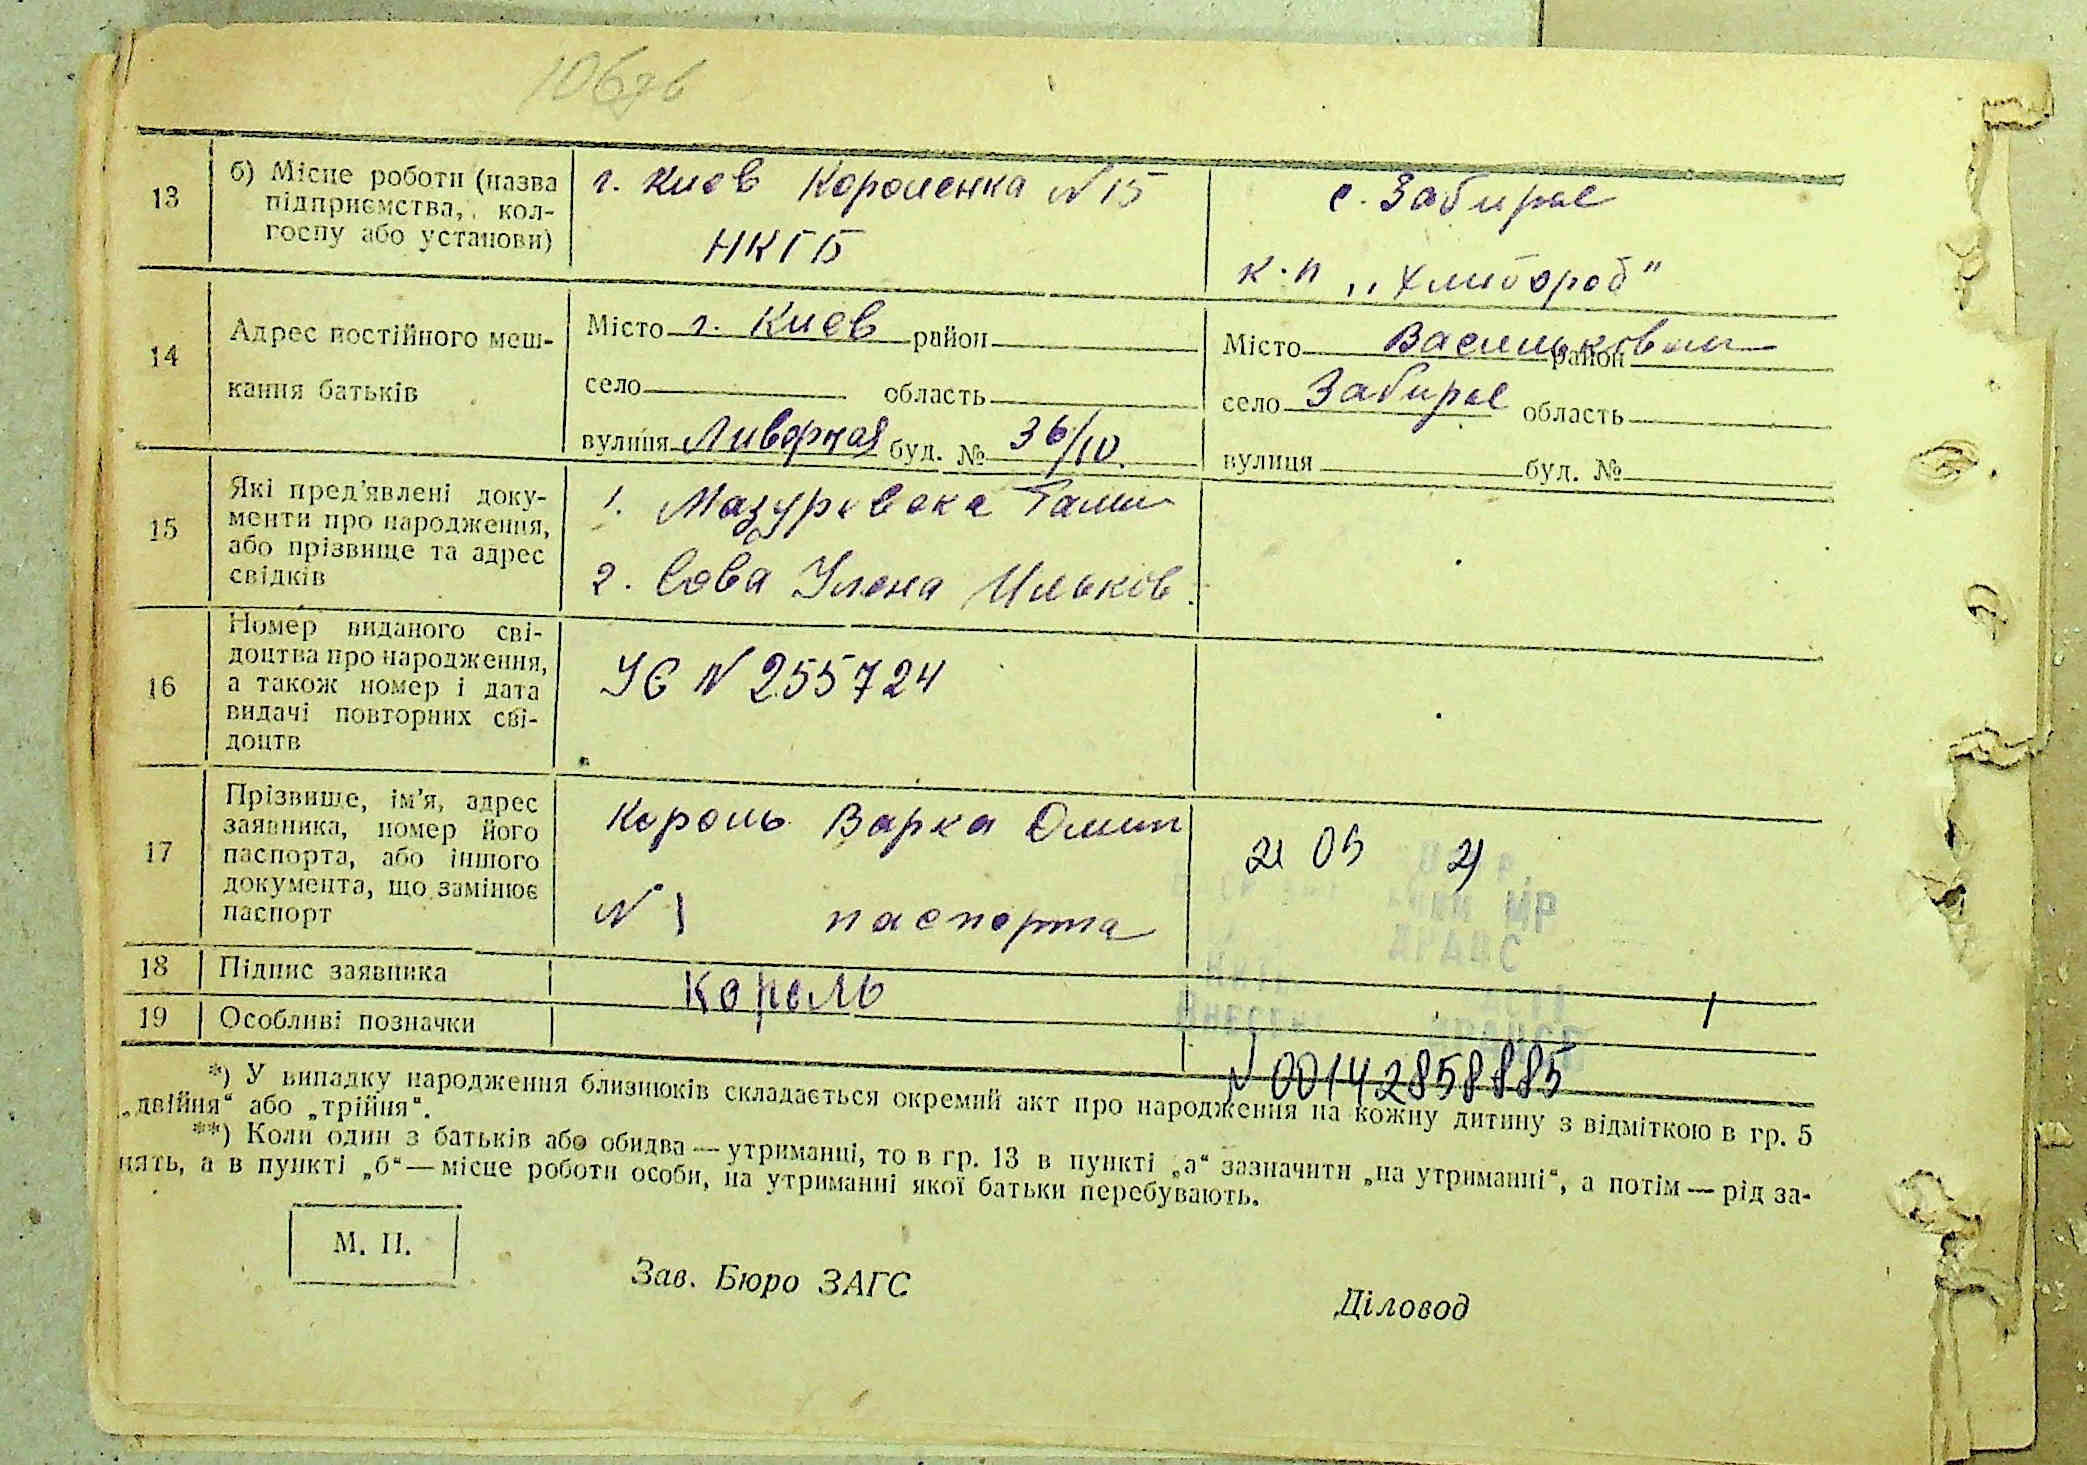 13
б) Місце роботи (назва
підприємства, кол-
госпу або установи)
г. Киев Короленка № 15
НКГБ
с. Забирье
к-п „Хлибороб"
14
Адрес постійного меш-
кання батьків
Місто г. Киев район
село область
вулиця буд. № 36/10.
Місто район
село Забирье область
вулиця буд. №
15
Які пред'явлені доку-
менти про народження,
або прізвище та адрес
свідків
1.
2. Сова Улена Ильков.
16
Номер виданого сві-
доцтва про народження,
а також номер і дата
видачі повторних сві-
доцтв
УЄ № 255724
17
Прізвище, ім'я, адрес
заявника, номер його
паспорта, або іншого
документа, що замінює
паспорт
Король Варка
№ 1 паспорта
18
Підпис заявника
Король
19
Особливі позначки
МР
ДРАЦС
№ 00142858885
*) У випадку народження близнюків складається окремий акт про народження на кожну дитину з відміткою в гр. 5
„двійня“ або „трійня“.
**) Коли один з батьків або обидва — утриманці, то в гр. 13 в пункті „а“ зазначити „на утриманні“, а потім — рід за-
нять, а в пункті „б“ — місце роботи особи, на утриманні якої батьки перебувають.
М. П.
Зав. Бюро ЗАГС
Діловод